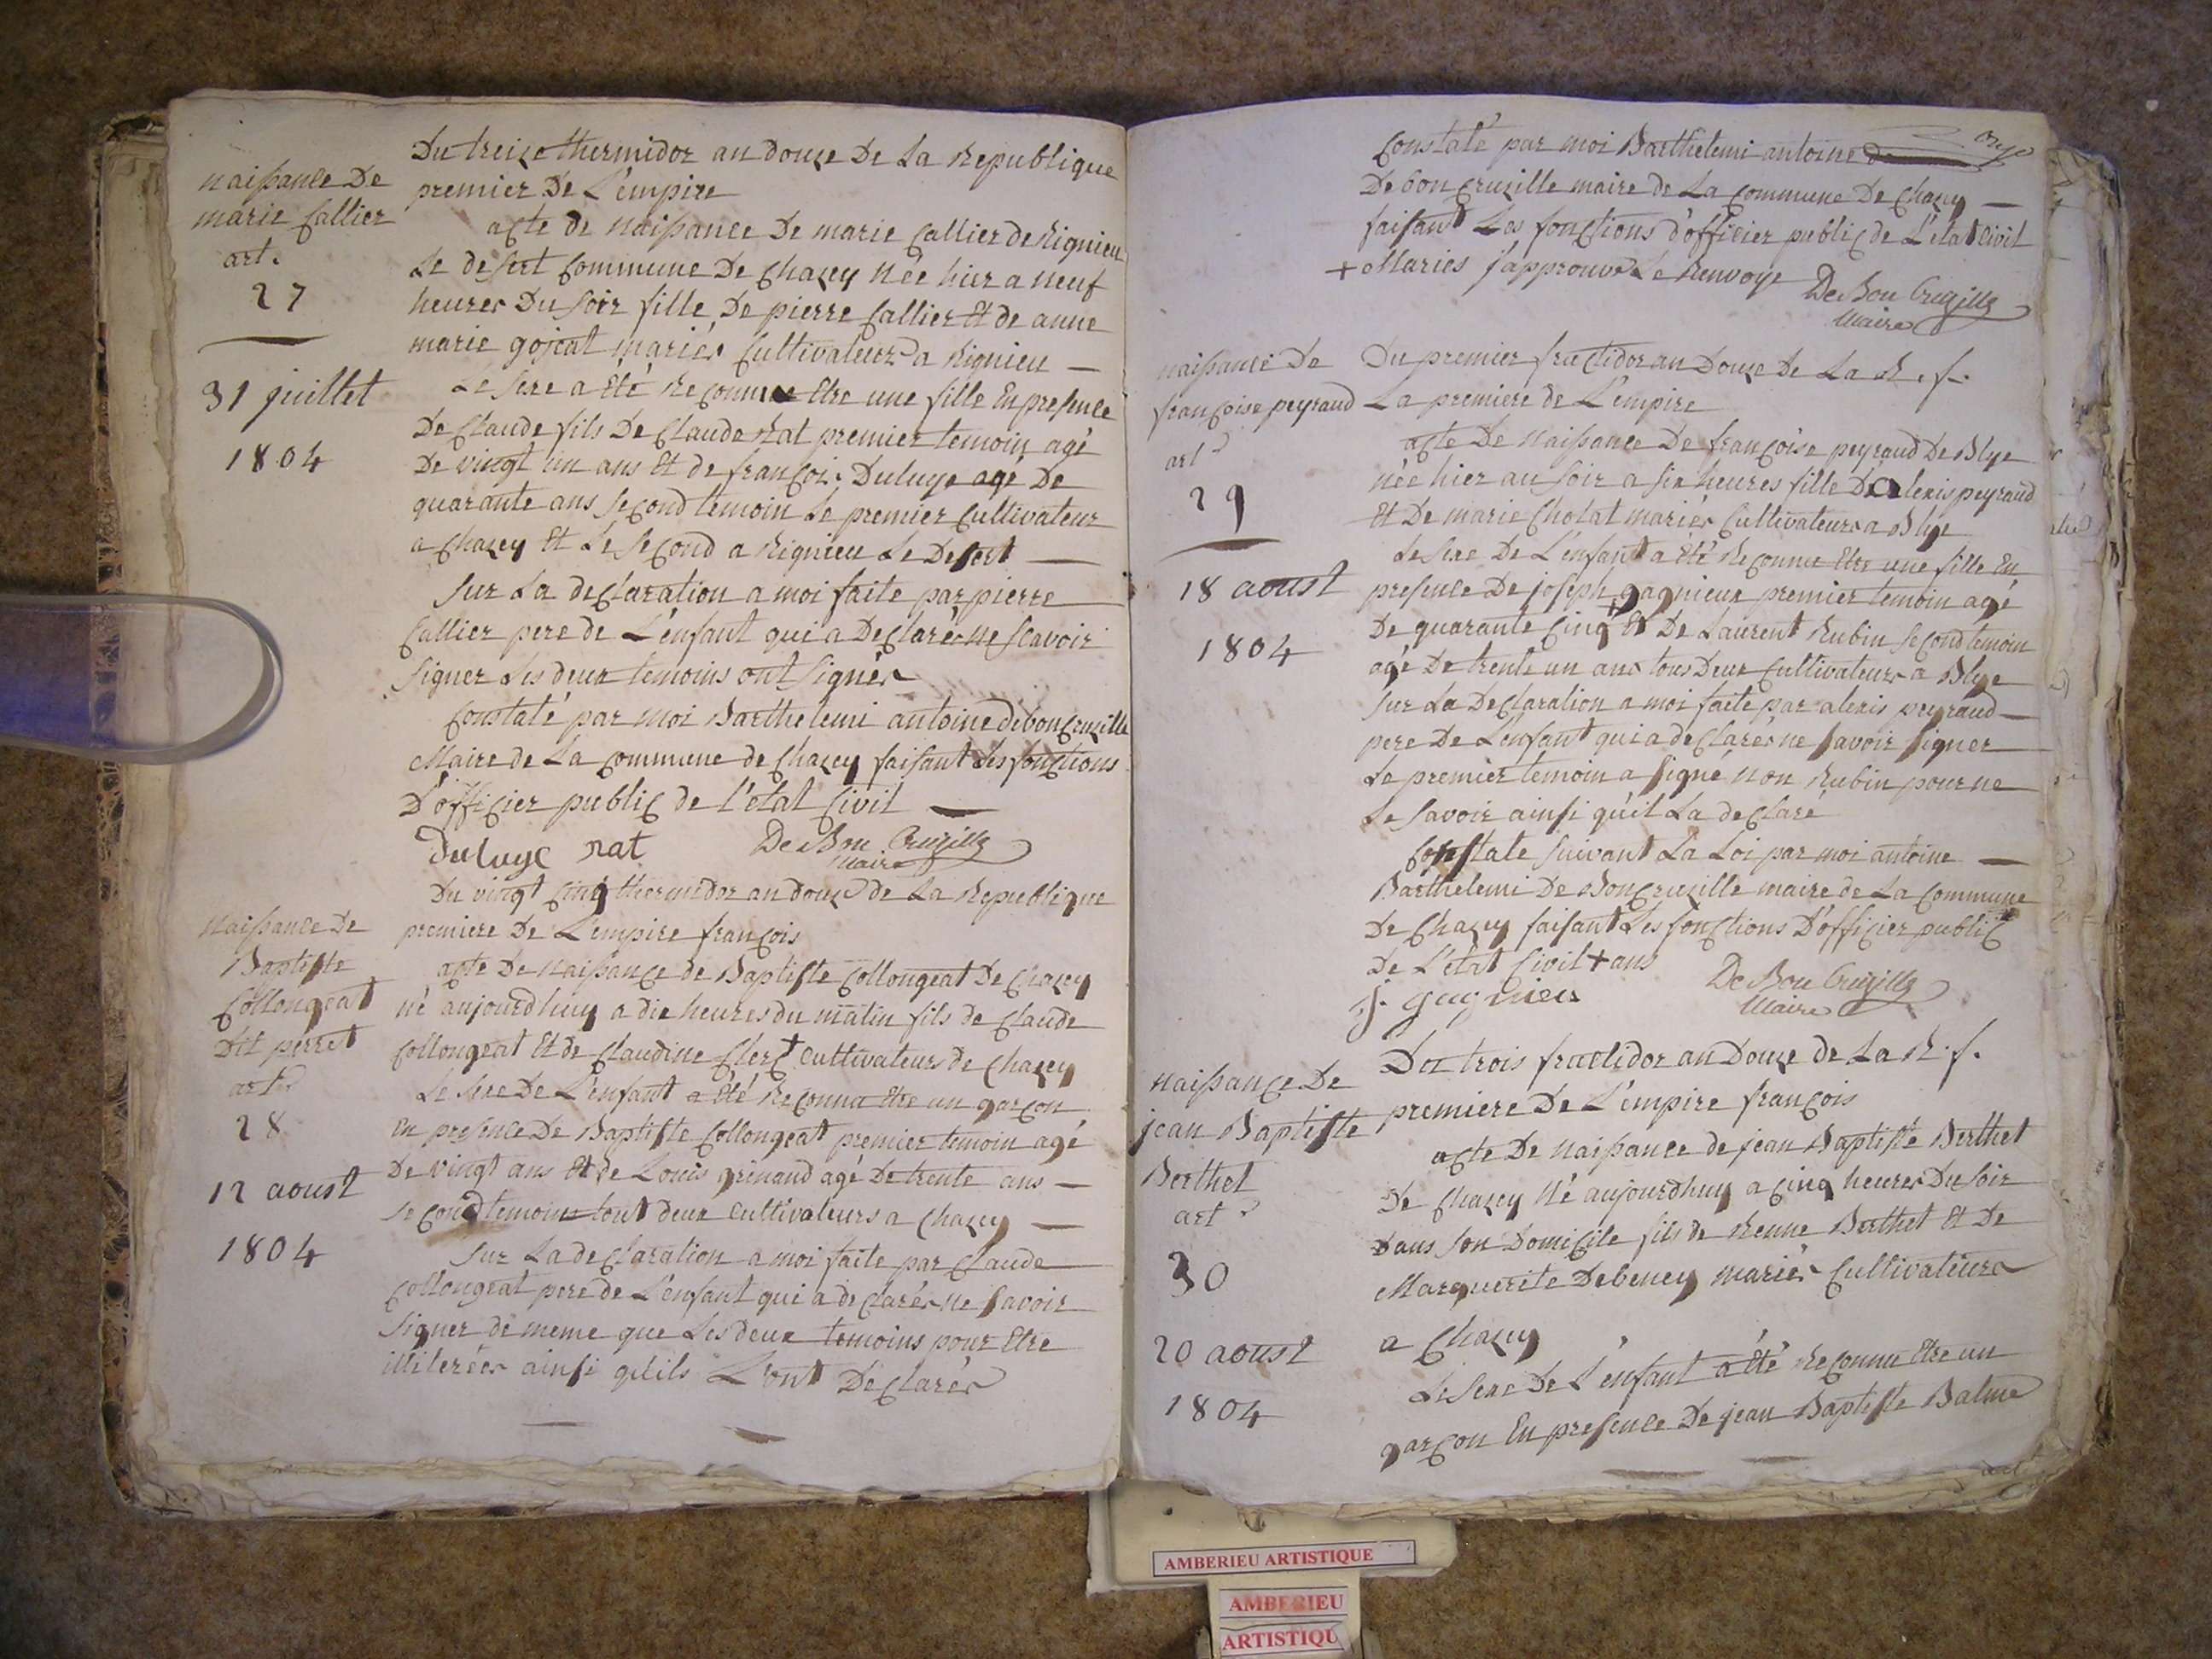 naissance De
marie Callier
art.
27
31 juillet
1804
Du treize thermidor an douze De La Republique
premier De L'empire
acte de naissance De marie Callier de Rignieu
Le desert Commune De Chazey Née hier a neuf
heures Du soir fille De pierre Callier Et de anne
marie gojcat mariés Cultivateurs a Rignieu —
Le sexe a Eté Reconnue Etre une fille En presence
De Claude fils De Claude Rat premier temoin agé
De vingt un ans Et de françois Duluye agé De
quarante ans second temoin Le premier Cultivateur
a Chazey Et Le second a Rignieu Le Desert —
sur La declaration a moi faite par pierre
Callier pere de L'enfant qui a Declarés ne scavoir
signer Les deux temoins ont signés
Constaté par moi Barthelemi antoine deboncruzille
Maire de La commune de Chazey faisant Les fonctions
D'officier public de l'état Civil —
Duluye rat De Bon Cruzille
Maire
naissance De
Baptiste
Collongeat
Dit perret
art.
28
12 aoust
1804
Du vingt cinq thermidor an douze de La Republique
premiere De L'empire françois
acte De naissance de Baptiste Collongeat De Chazey
né aujourdhuy a dix heures du matin fils de Claude
Collongeat Et de Claudine Clerc + Cultivateurs de Chazey
Le sexe De L'enfant a Eté Reconnu Etre un garçon
En presence De Baptiste Collongeat premier temoin agé
De vingt ans Et de Louis grinand agé De trente ans —
second temoin tout deux Cultivateurs a Chazey —
sur La declaration a moi faite par Claude
Collongeat pere de L'enfant qui a declarés ne savoir
signer de meme que Les deux temoins pour Etre
illiterées ainsi qu'ils L'ont Declarés
onze
Constaté par moi Barthelemi antoine de
De bon Cruzille maire de La commune De Chazey —
faisant Les fonctions d'officier public de L'état Civil
+ Mariés j'approuve Le Renvoye De Bon Cruzille
Maire
naissance De
françoise peyraud
art.
29
18 aoust
1804
Du premier fructidor an Douze De La R. f.
La premiere de L'empire
acte De naissance De françoise peyraud De Blye
née hier au soir a six heures fille D'alexis peyraud
Et De marie Cholat mariés Cultivateurs a Blye
Le sexe De L'enfant a Eté Reconnu Etre une fille En
presence De joseph gagnieux premier temoin agé
De quarante Cinq + Et De Laurent Rubin second temoin
agé De trente un ans tous Deux Cultivateurs a Blye
sur La Declaration a moi faite par alexis peyraud —
pere De L'enfant qui a declarés ne savoir signer
Le premier temoin a signé non Rubin pour ne
Le savoir ainsi qu'il La declaré
Constate suivant La Loi par moi antoine —
Barthelemi De Boncruzille maire de La Commune
De Chazey faisant Les fonctions D'officier public
De L'état Civil + ans De Bon Cruzille
j. gagnieu Maire
naissance De
jean Baptiste
Berthet
art.
30
20 aoust
1804
Du trois fructidor an Douze de La R. f.
premiere De L'empire françois
acte De naissance de jean Baptiste Berthet
De Chazey Né aujourdhuy a cinq heures Du soir
Dans son Domicile fils de Renne Berthet Et De
Marguerite Debeney mariés Cultivateurs
a Chazey
Le sexe De L'enfant a Eté Reconnu Etre un
garçon En presence De jean Baptiste Balme
AMBERIEU ARTISTIQUE
AMBERIEU
ARTISTIQU